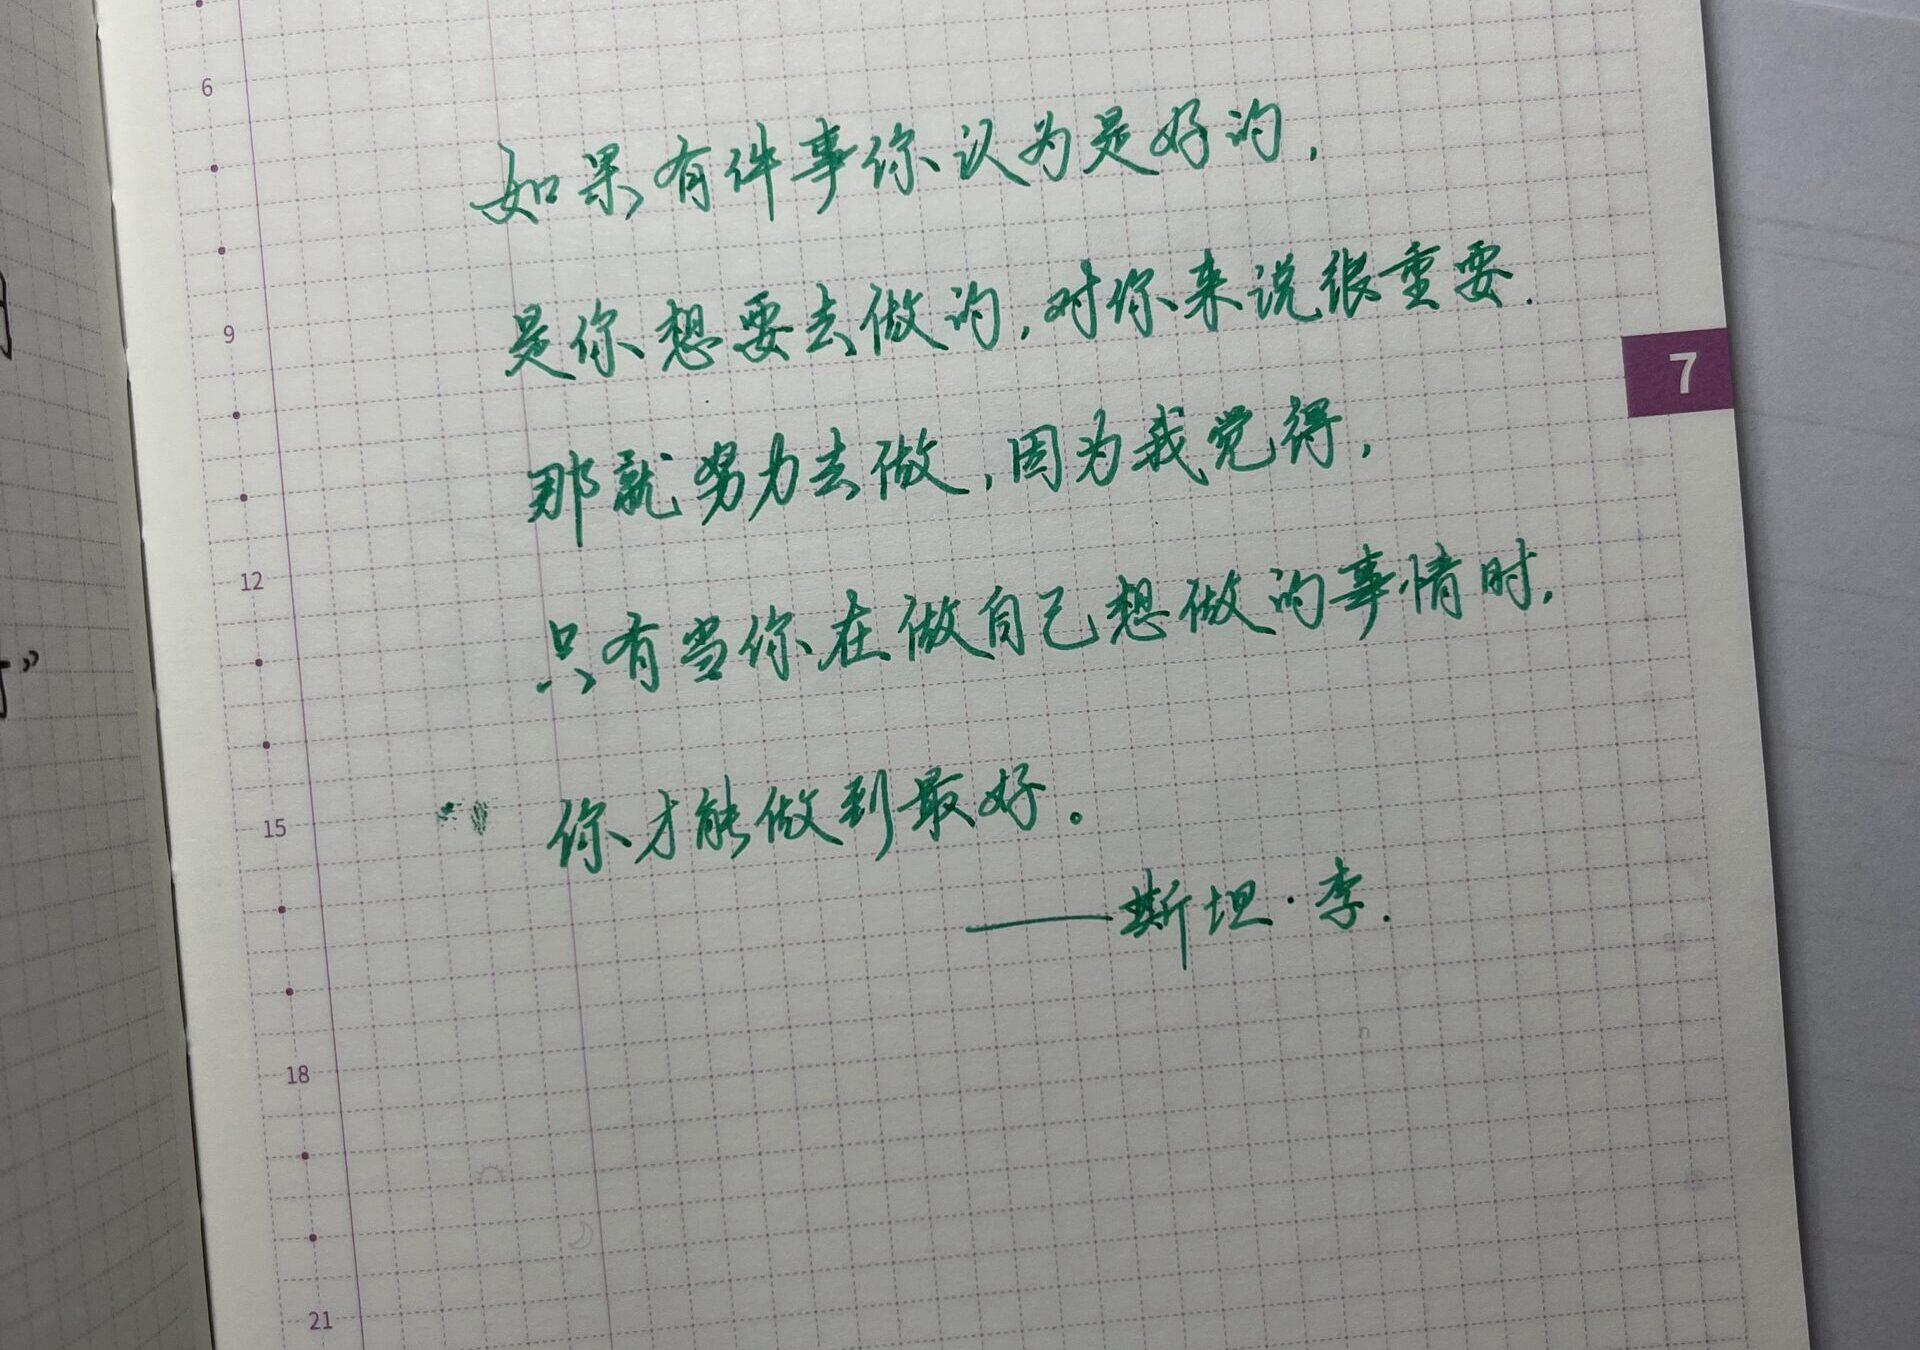 6
如果有件事你认为是好的,
是你想要去做的,对你来说很重要.
9
7
那就努力去做,因为我觉得,
12
只有当你在做自己想做的事情时,
15
你才能做到最好。
——斯坦·李.
18
21